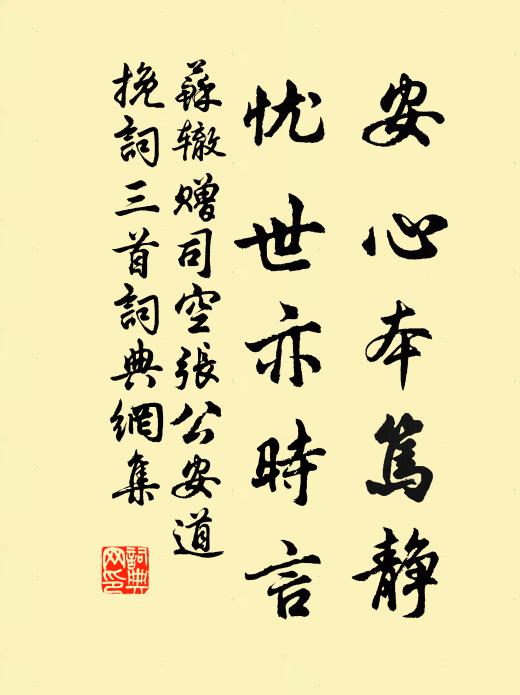 安心本篤静
忧世亦時言
蘇辙赠司空張公安道
挽詞三首詞典網集
詞典网印